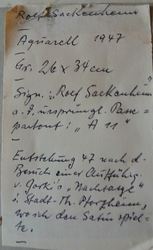 Rolf Sackenheim
Aquarell 1947
Gr. 26 x 34 cm
Sign. "Rolf Sackenheim"
a. d. ursprüngl. Passe-
partout: "A 11"
Entstehung 47 nach d.
Besuch einer Aufführg.
v. Gorki's "Nachtasyl"
i. Stadt-Th. Pforzheim,
wo ich den Satin spiel-
te.